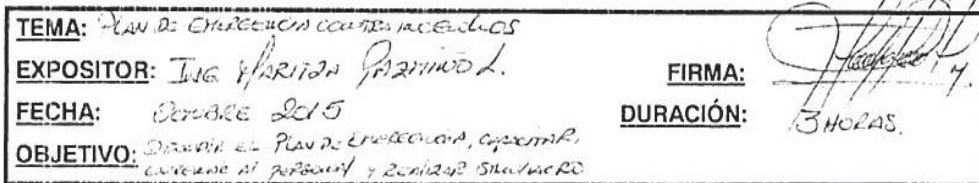 TEMA: PLAN DE EMERGENCIA CONTRA INCENDIOS
EXPOSITOR: ING MARITZA GAZMIÑO L. FIRMA:
FECHA: OCTUBRE 2015 DURACIÓN: 3 HORAS.
OBJETIVO: EL PLAN DE EMERGENCIA, CAPACITAR,
AL PERSONAL Y REALIZAR SIMULACRO